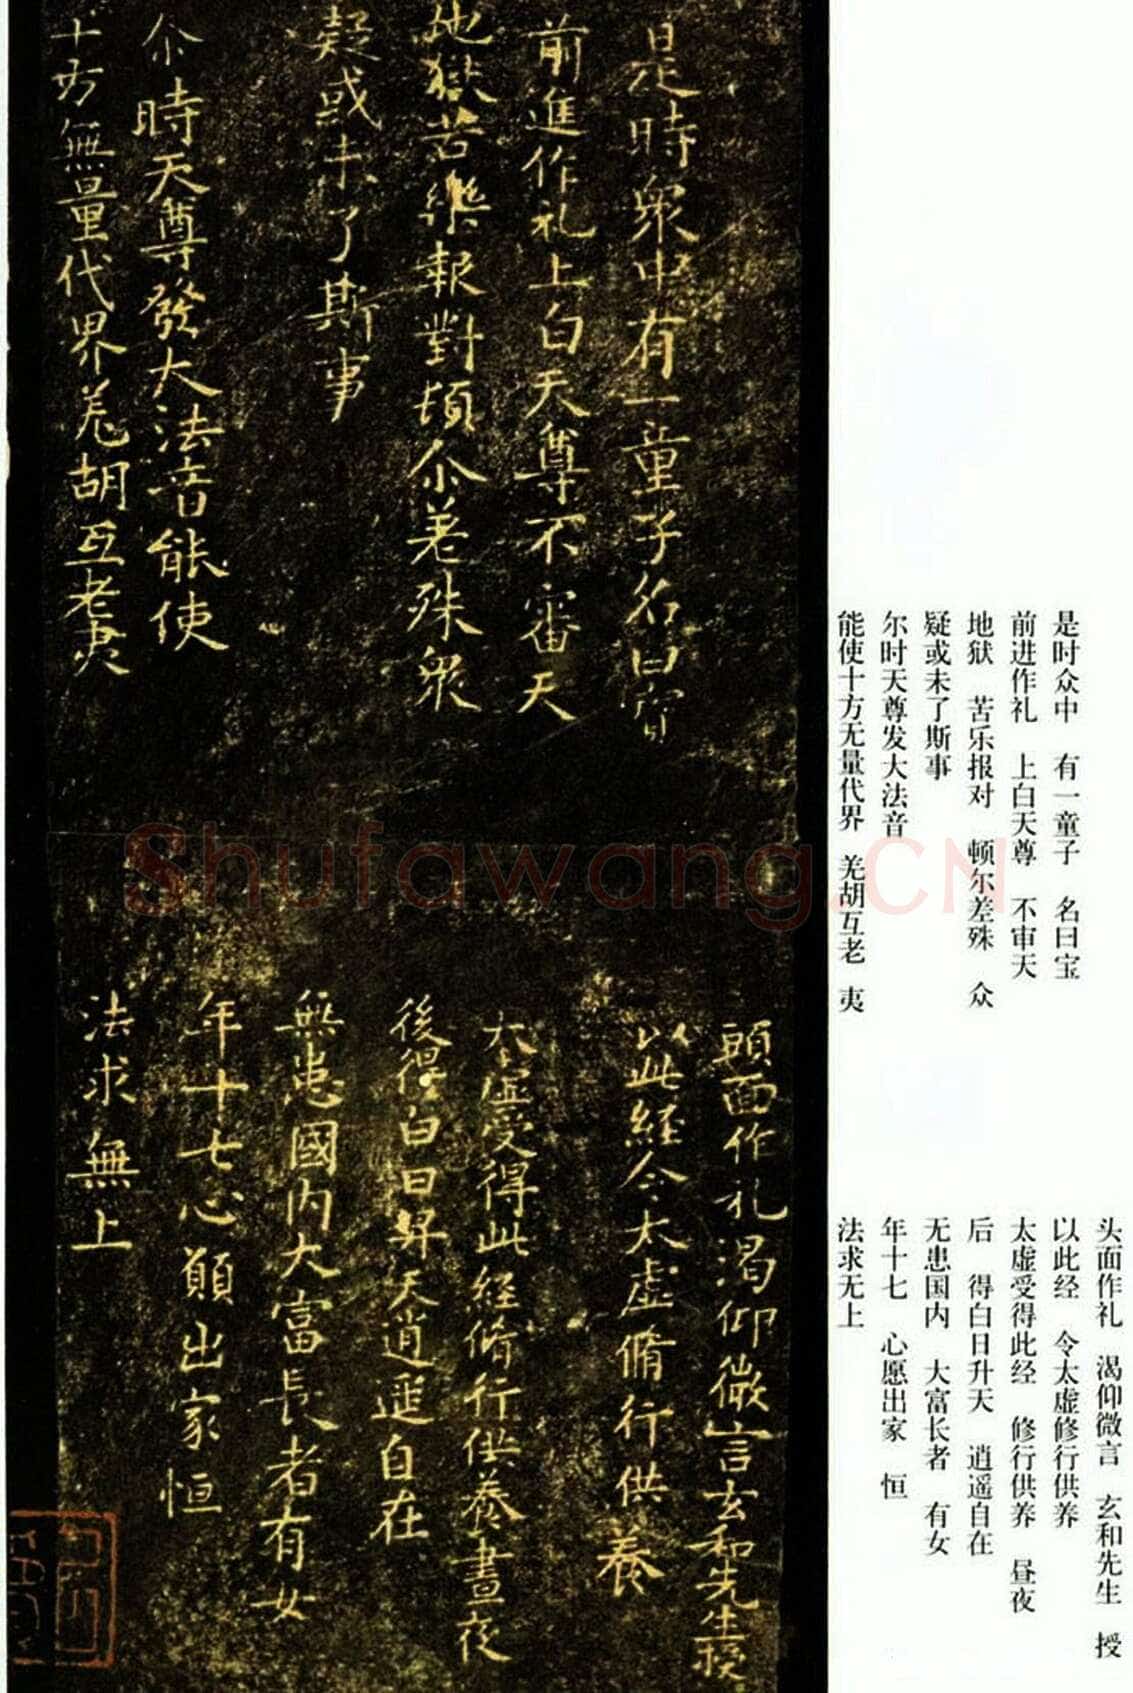 是時衆中有一童子名曰寳
前進作礼上白天尊不審天
地獄苦樂報對頓尒差殊衆
疑或未了斯事
尒時天尊發大法音能使
十方無量代界羌胡互老夷
是时众中 有一童子 名曰宝
前进作礼 上白天尊 不审天
地狱 苦乐报对 顿尔差殊 众
疑或未了斯事
尔时天尊发大法音
能使十方无量代界 羌胡互老 夷
Shufawang.CN
頭面作礼渴仰微言玄和先生授
以此経令太虚脩行供養
太虚受得此経脩行供養晝夜
後得白日昇天逍遥自在
無患國内大富長者有女
年十七心願出家恒
法求無上
头面作礼 渴仰微言 玄和先生 授
以此经 令太虚修行供养
太虚受得此经 修行供养 昼夜
后 得白日升天 逍遥自在
无患国内 大富长者 有女
年十七 心愿出家 恒
法求无上